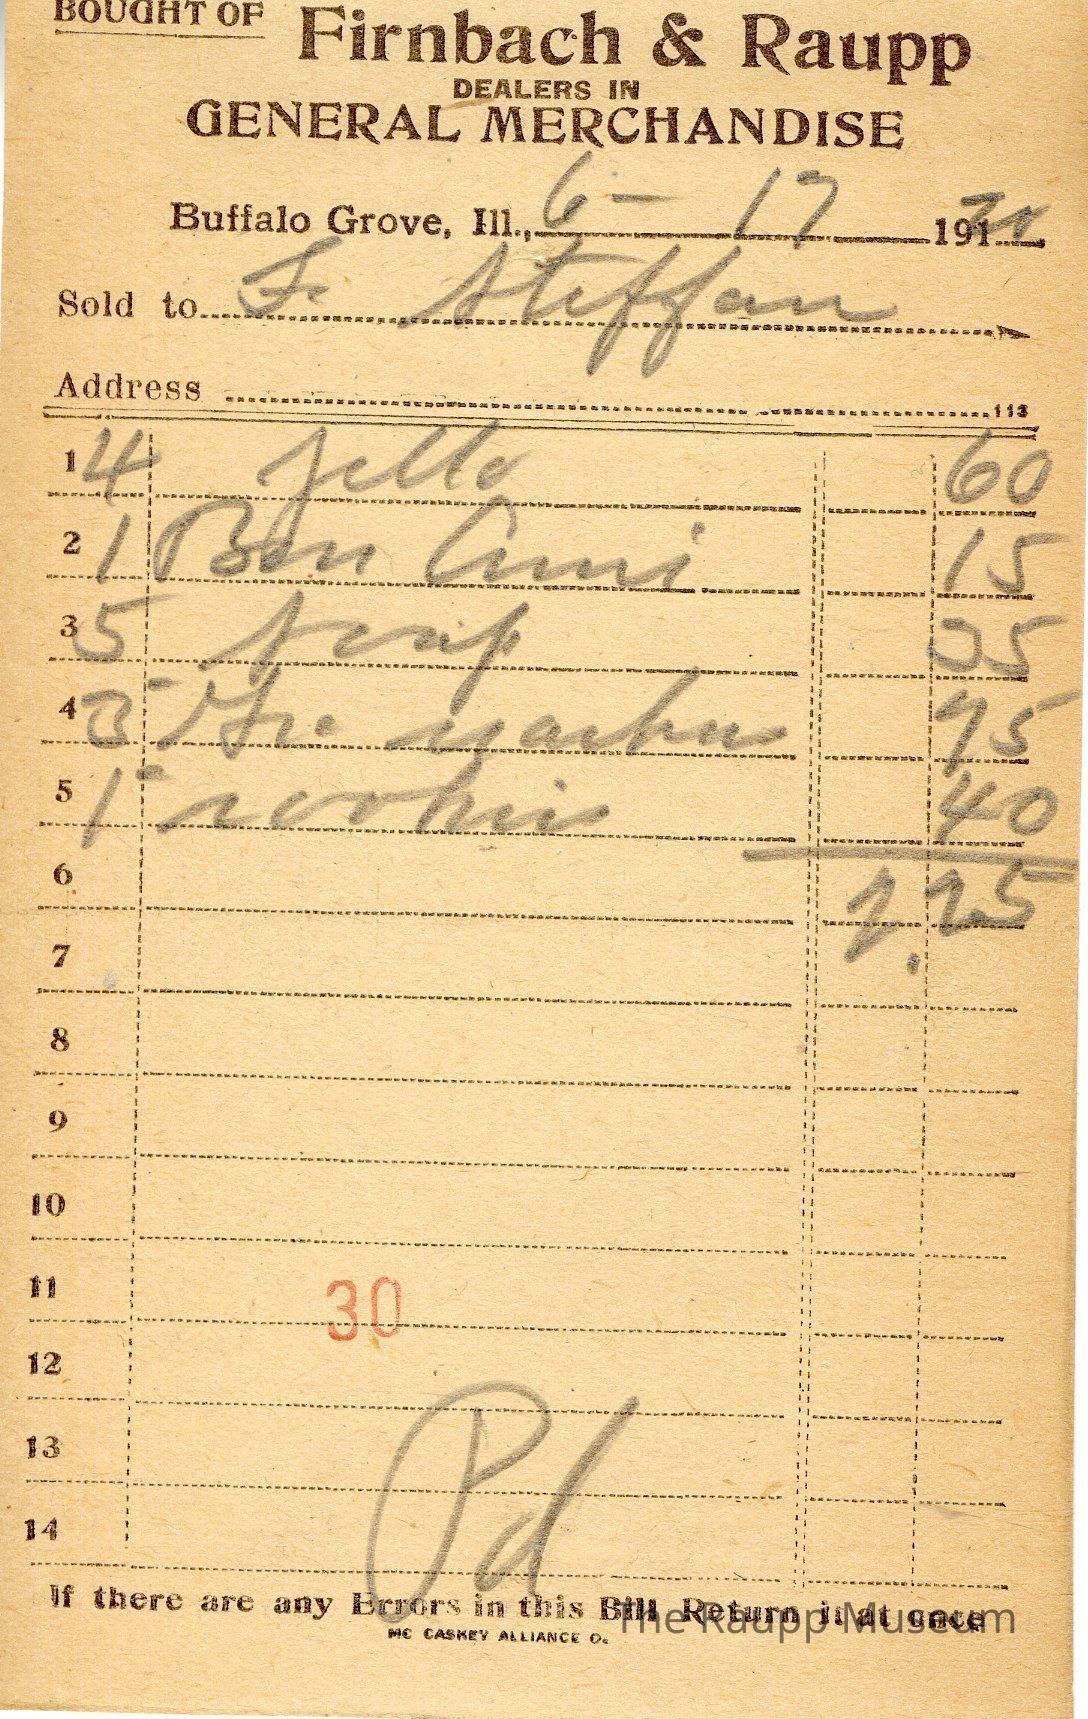 BOUGHT OF Firnbach & Raupp
DEALERS IN
GENERAL MERCHANDISE
Buffalo Grove, Ill., 6 - 17 191
Sold to F. Steffan
Address
113
1 4 Jello 60
2 1 Bon Ami 15
3 5 soap 35
4 3 75
5 1 40
6 2.25
7
8
9
10
11 30
12
13
14
Pd
If there are any Errors in this Bill Return it at once
MC CASKEY ALLIANCE O.
The Raupp Museum